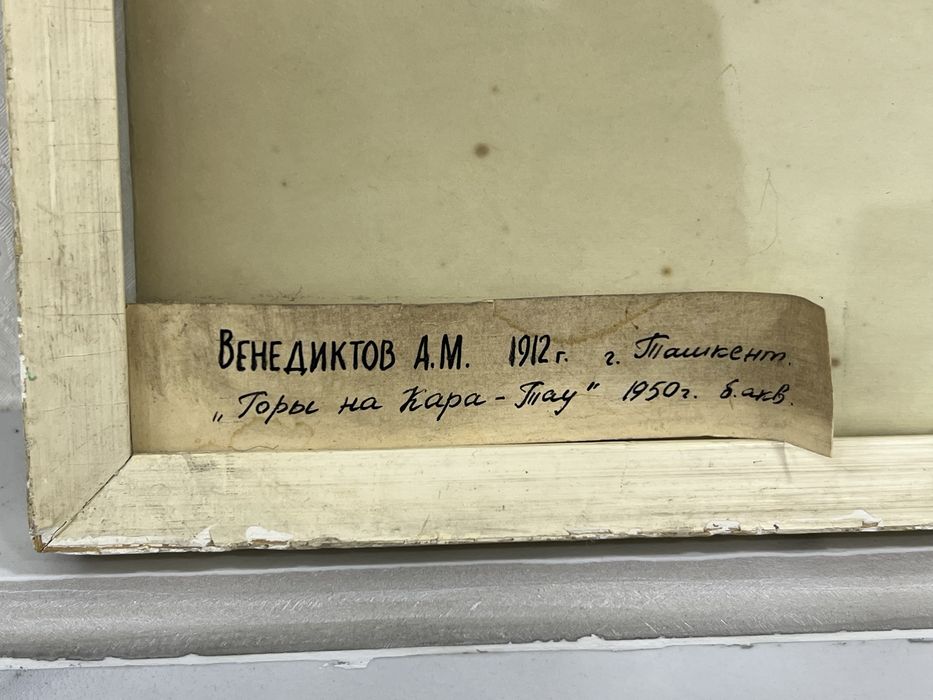 ВЕНЕДИКТОВ А.М. 1912 г. г. Ташкент.
„Горы на Кара-Тау" 1950г. б. акв.